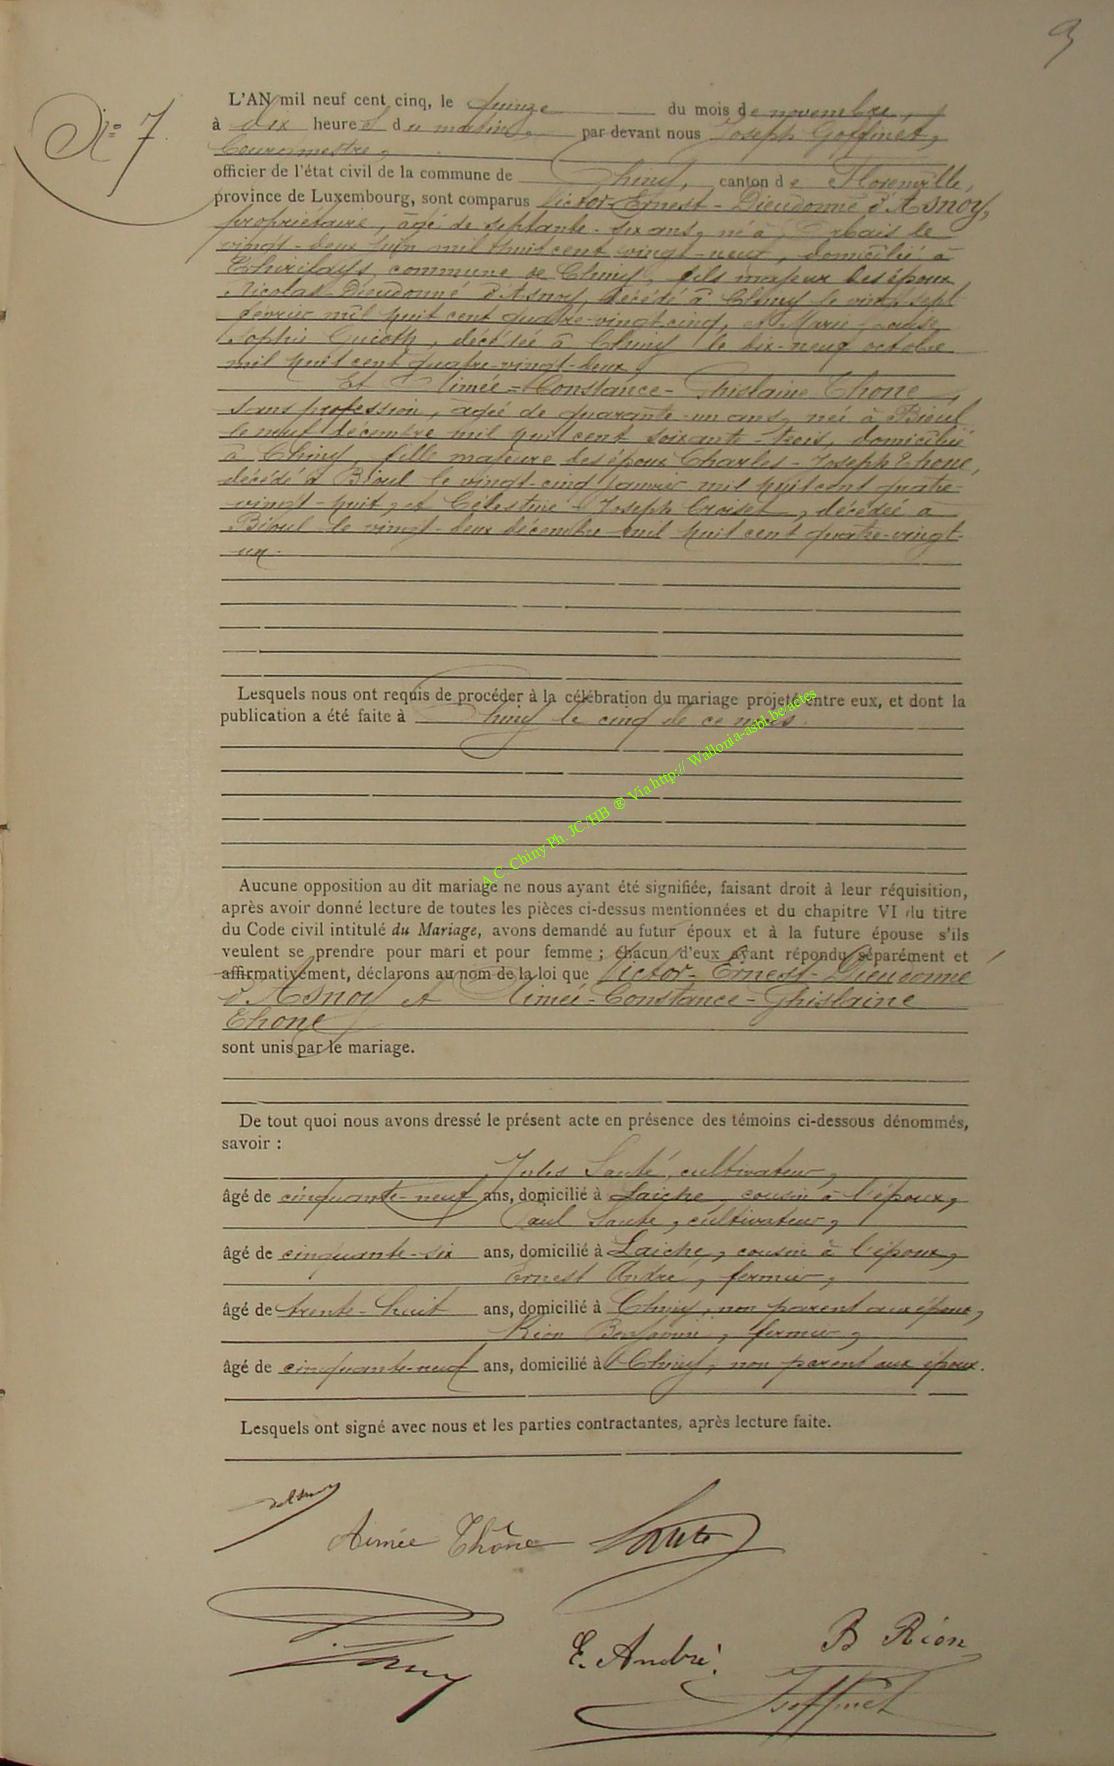 9
N° 7
L'AN mil neuf cent cinq, le quinze du mois de novembre,
à dix heures du matin, par devant nous Joseph Goffinet,
Bourgmestre,
officier de l'état civil de la commune de Chiny, canton de Florenville,
province de Luxembourg, sont comparus Victor-Ernest-Dieudonné d'Asnoy,
propriétaire, âgé de septante-six ans, né à le
vingt-deux juin mil huit cent vingt-neuf, domicilié à
commune de Chiny, fils majeur des époux
Nicolas-Dieudonné d'Asnoy, décédé à Chiny le vingt-sept
février mil huit cent quatre-vingt-cinq, et Marie-Louise
Sophie décédée à Chiny le dix-neuf octobre
mil huit cent quatre-vingt-deux,
Et Aimée-Constance-Ghislaine Thone,
sans profession, âgée de quarante-un ans, née à Bioul
le neuf décembre mil huit cent soixante-trois, domiciliée
à Chiny, fille majeure des époux Charles-Joseph Thone,
décédé à Bioul le vingt-cinq janvier mil huit cent quatre-
vingt-huit, et Célestine-Joseph Croiset, décédée à
Bioul le vingt-deux décembre mil huit cent quatre-vingt-
un.
Lesquels nous ont requis de procéder à la célébration du mariage projeté entre eux, et dont la
publication a été faite à Chiny le cinq de ce mois.
A.C. Chiny Ph. JC/HB ® Via http:// Wallonia-asbl.be/actes
Aucune opposition au dit mariage ne nous ayant été signifiée, faisant droit à leur réquisition,
après avoir donné lecture de toutes les pièces ci-dessus mentionnées et du chapitre VI du titre
du Code civil intitulé du Mariage, avons demandé au futur époux et à la future épouse s'ils
veulent se prendre pour mari et pour femme ; chacun d'eux ayant répondu séparément et
affirmativement, déclarons au nom de la loi que Victor-Ernest-Dieudonné
d'Asnoy et Aimée-Constance-Ghislaine
Thone
sont unis par le mariage.
De tout quoi nous avons dressé le présent acte en présence des témoins ci-dessous dénommés,
savoir :
Jules Lauté, cultivateur,
âgé de cinquante-neuf ans, domicilié à Laiche, cousin à l'époux,
Paul Lauté, cultivateur,
âgé de cinquante-six ans, domicilié à Laiche, cousin à l'époux,
Ernest André, fermier,
âgé de trente-huit ans, domicilié à Chiny, non parent aux époux,
Rion Benjamin, fermier,
âgé de cinquante-neuf ans, domicilié à Chiny, non parent aux époux.
Lesquels ont signé avec nous et les parties contractantes, après lecture faite.
Aimée Thône
E. André.
B Rion
JGoffinet